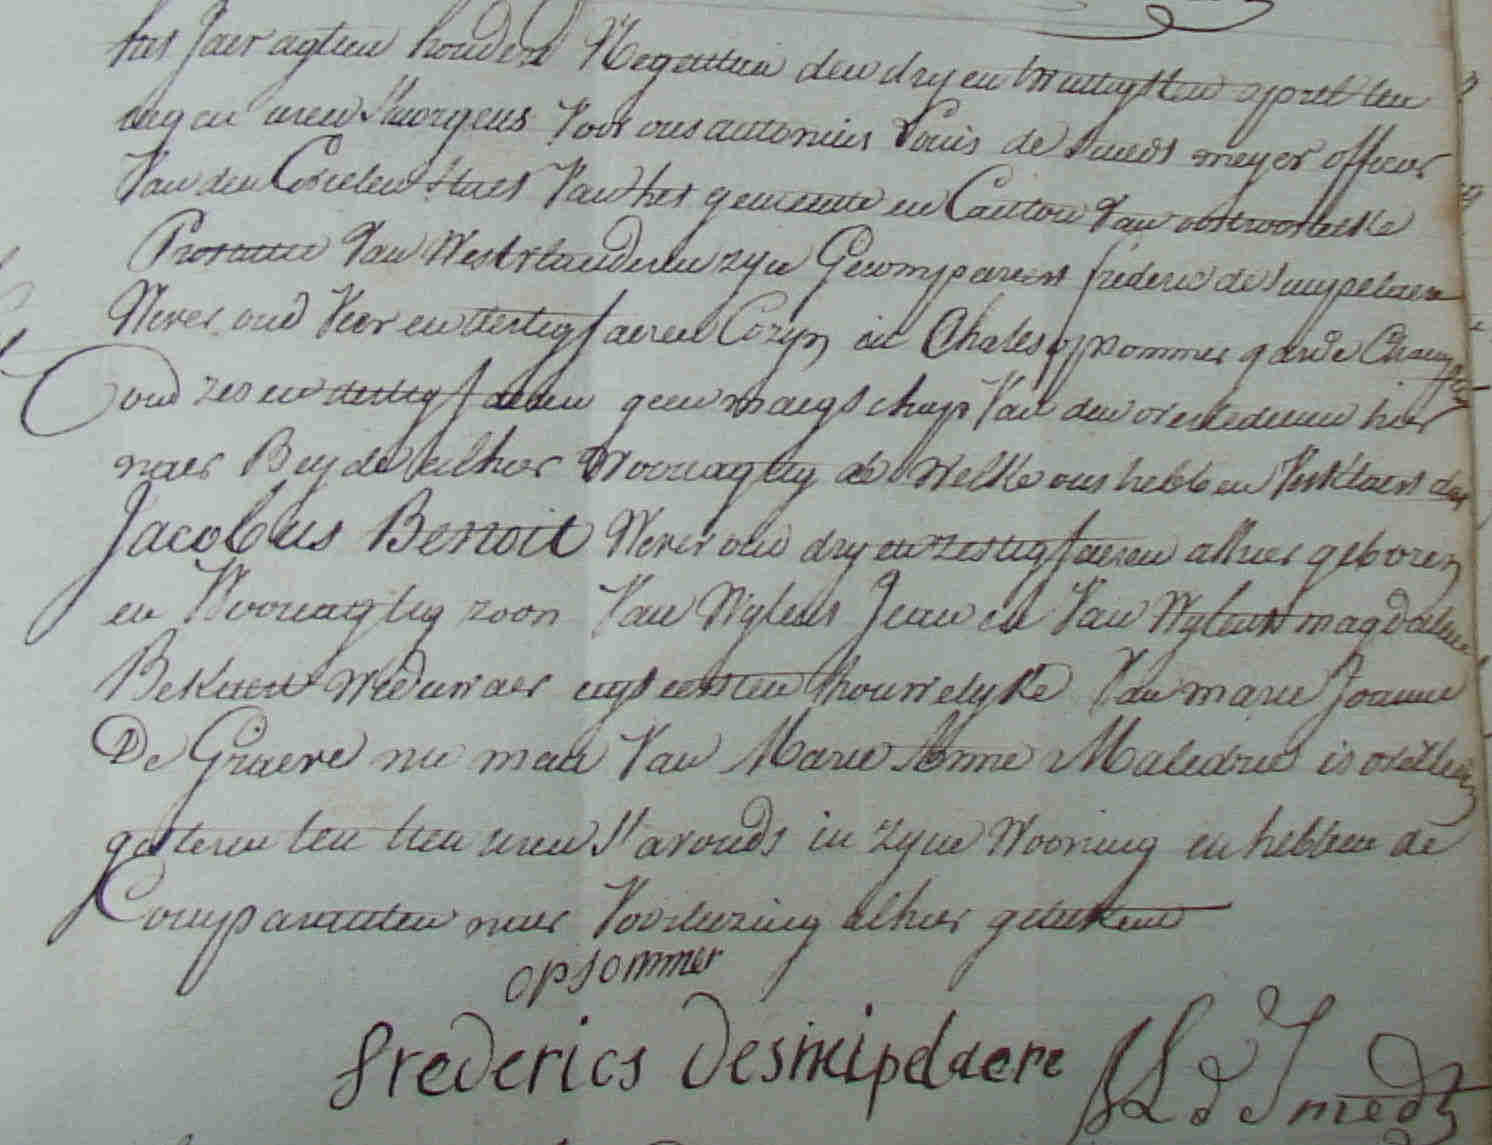 het Jaer agtien hondert Negentien den dry en twintigsten april ten
negen uren Smorgens Voor ons antonius Louis de Smedt meyer officier
Van den Civielen Staet Van het gemeente en Canton Van oostroosbeke
Provintie Van Westvlanderen zyn Gecompareert frederic de Smypelaere
Wever oud Vier en dertig Jaeren Cozyn en Chales opsommer garde Champetter
oud zes en dertig Jaeren geen maegschap Van den overledenen hier
naer Beyde alhier Woonagtig de Welke ons hebben Verklaert dat
Jacobus Benoit Wever oud dry en zestig Jaeren alhier geboren
en Woonagtig zoon Van Wylent Jean en Van Wylent magdalene
Bekaert Weduwaer uyt eersten houwelyke Van marie Joanne
De Graeve nu man Van Marie Anne Maledrie is overleden
gisteren ten tien uren S'avonds in zyne Wooning en hebben de
Comparanten naer Voorlezing alhier geteekent
opsommer
frederics Desmipelaere ALdeSmedt